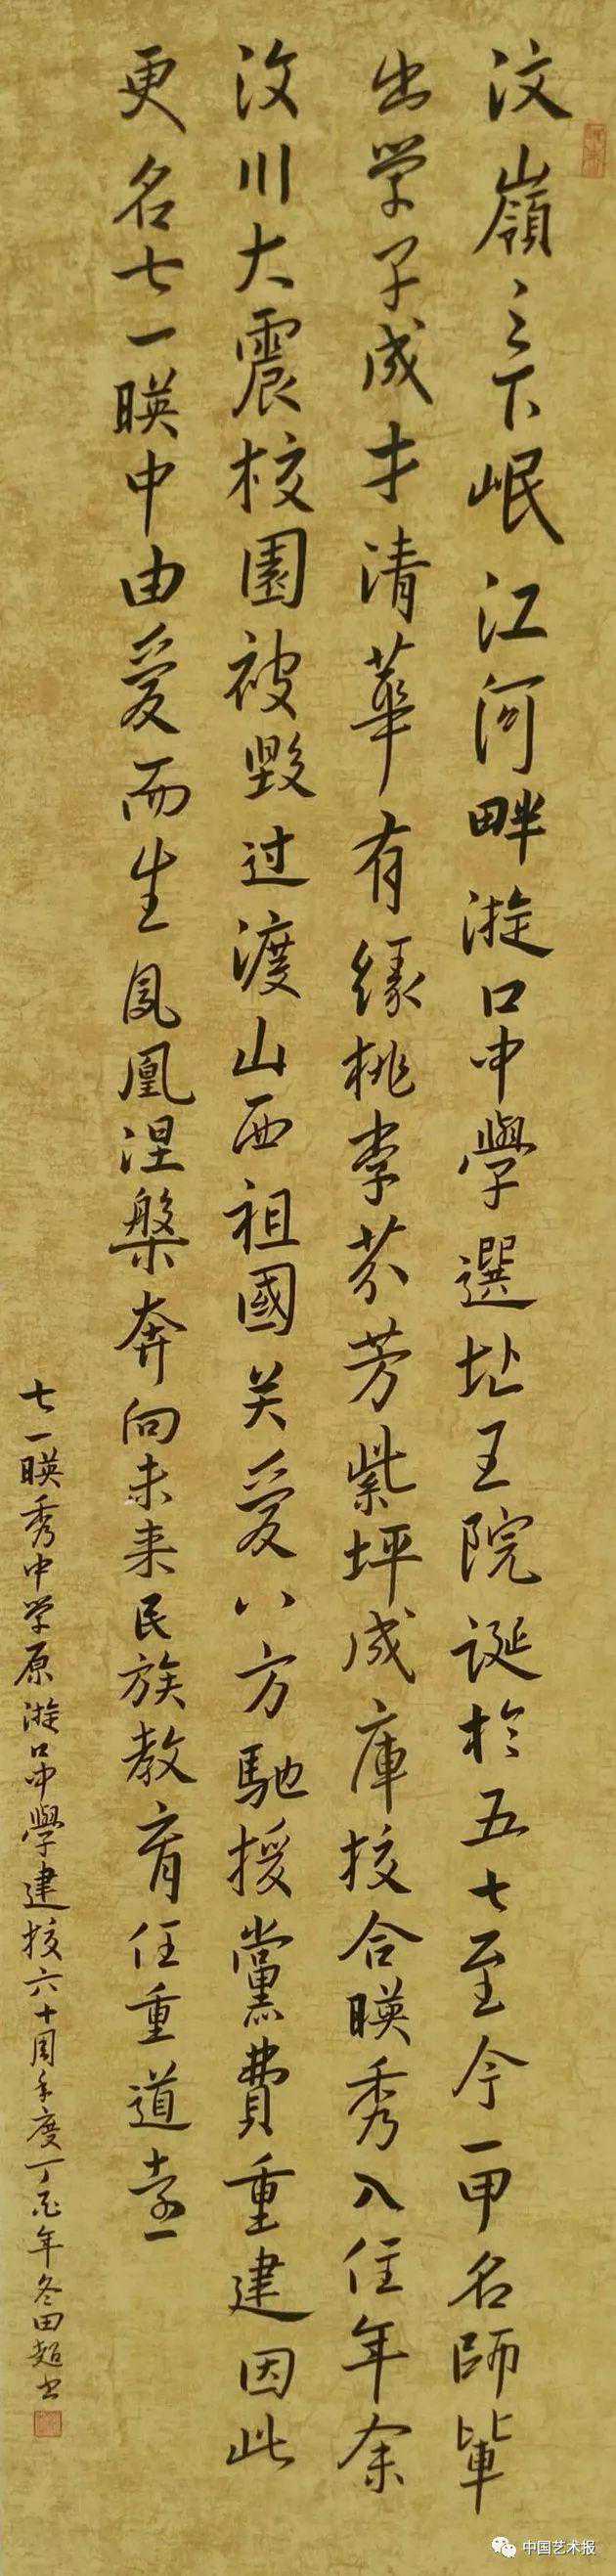 汶嶺之下岷江河畔漩口中學選址王院誕於五七至今一甲名師輩
出学子成才清華有缘桃李芬芳紫坪成庫校合暎秀入住年余
汶川大震校园被毁过渡山西祖國关爱八方馳援黨費重建因此
更名七一暎中由爱而生凤凰涅槃奔向未来民族教育任重道远
七一暎秀中学原漩口中學建校六十周年度丁酉年冬田超书
中国艺术报